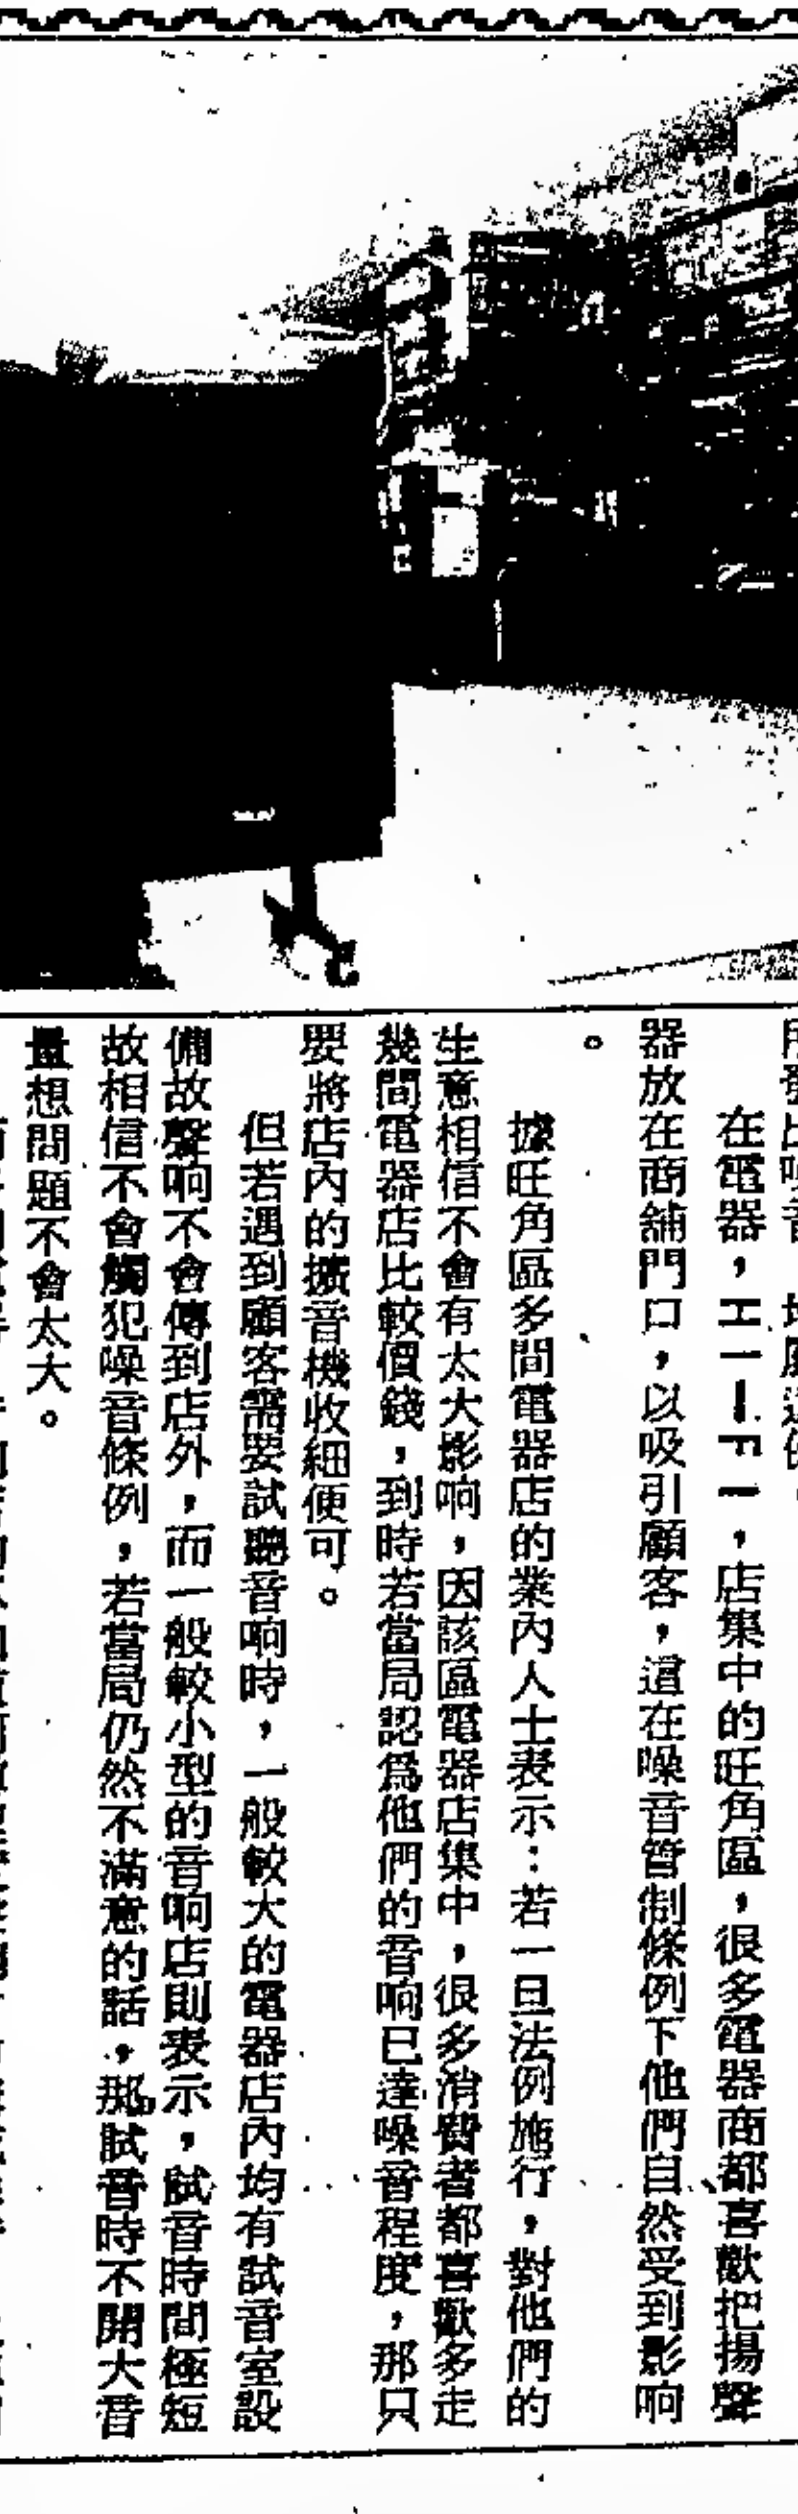 在電器，HI－FI，店集中的旺角區，很多電器商都喜歡把揚聲
器放在商舖門口，以吸引顧客，這在噪音管制條例下他們自然受到影响
。
據旺角區多間電器店的業內人士表示：若一旦法例施行，對他們的
生意相信不會有太大影响，因該區電器店集中，很多消費者都喜歡多走
幾間電器店比較價錢，到時若當局認爲他們的音响已達噪音程度，那只
要將店內的擴音機收細便可。
但若遇到顧客需要試聽音响時，一般較大的電器店內均有試音室設
備故聲响不會傳到店外，而一般較小型的音响店則表示，試音時間極短
故相信不會觸犯噪音條例，若當局仍然不滿意的話，那試音時不開大音
量想問題不會太大。